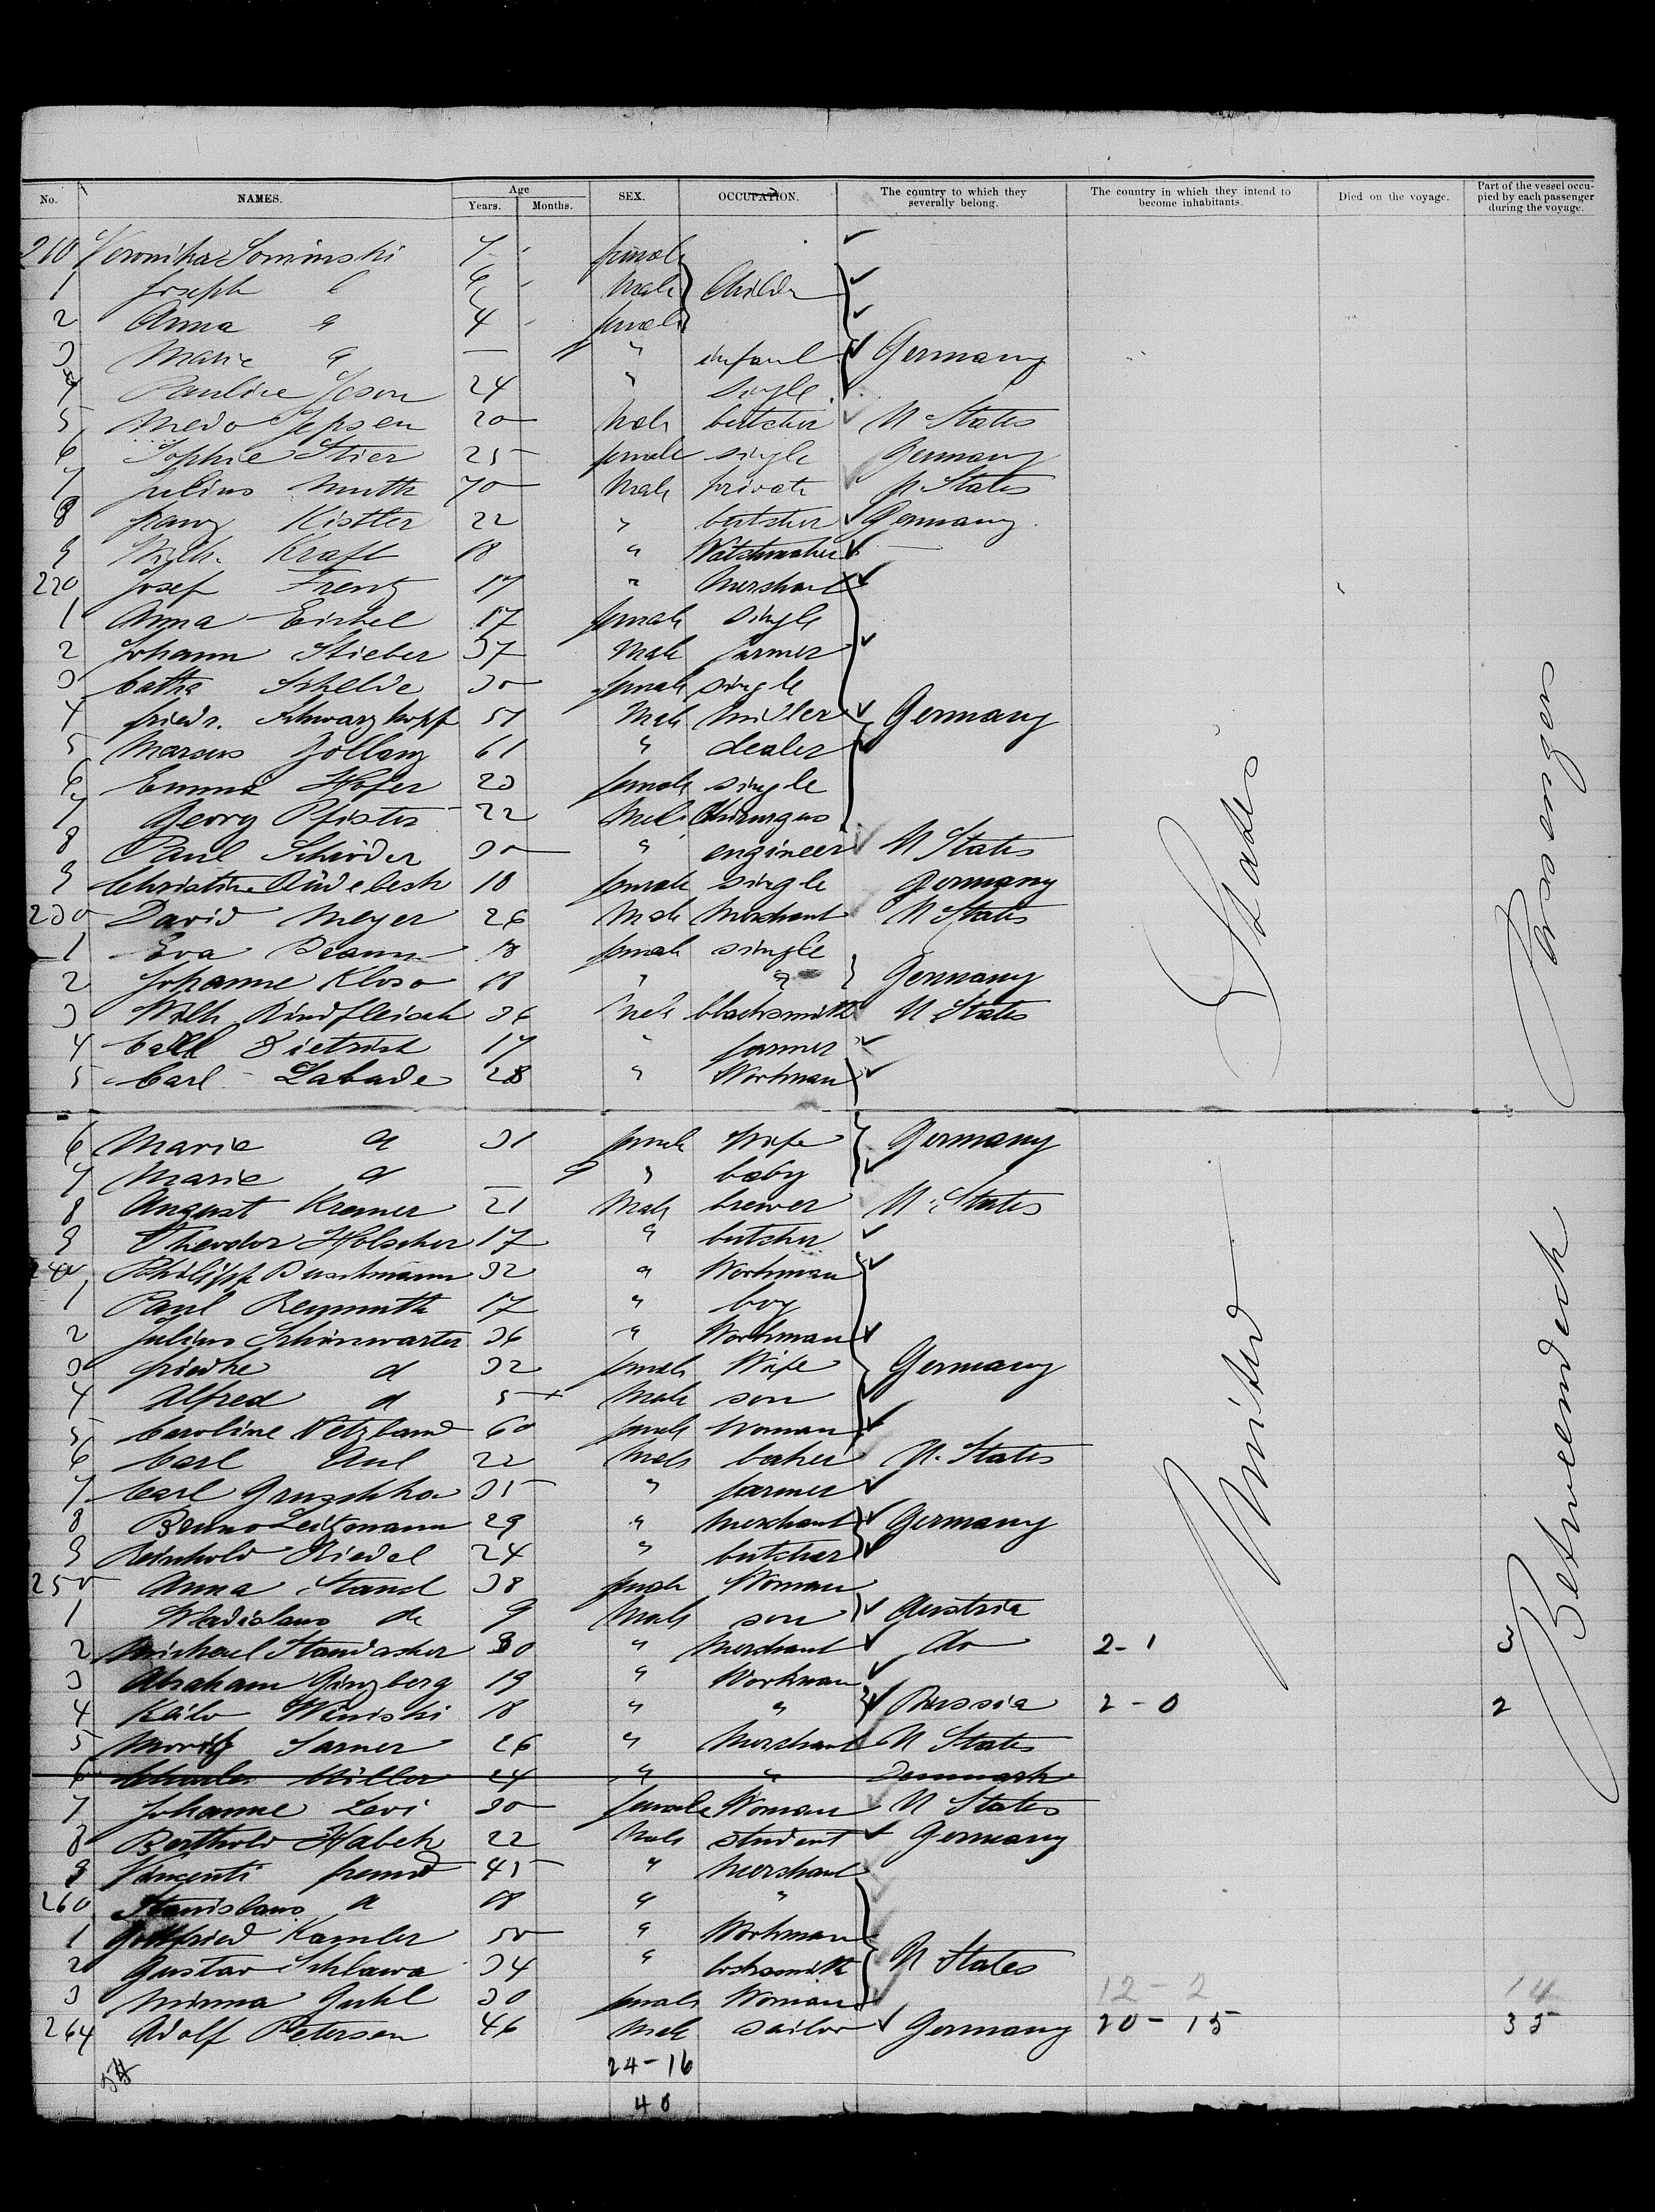 No. NAMES. Age Years. Months. SEX. OCCUPATION. The country to which they severally belong. The country in which they intend to become inhabitants. Died on the voyage. Part of the vessel occupied by each passenger during the voyage.
210 Veronika Sominski 7 female
1 Joseph 6 Male Childr
2 Anna " 4 female
3 Marie " — 11 " infant Germany
4 Pauline 24 " single
5 Jepsen 20 Male butcher U States
6 Sophie Stier 25 female single Germany
7 Julius Muth 70 Male private U States
8 Franz Kistler 22 " butcher Germany
9 Wilh. Kraft 18 " Watchmaker
220 Josef Frentz 17 " Merchant
1 Anna Eichel 17 female single
2 Johann Stieber 37 Male farmer
3 Cathe Schelde 30 female single
4 Friedr. Schwarzkopf 51 Male Miller Germany
5 Marcus Gollanz 61 " dealer
6 Emma Hofer 23 female single
7 Georg Pfister 22 Male Chirurgus
8 Paul Schröder 30 " engineer U States
9 Christine 18 female single Germany
230 David Meyer 26 Male Merchant U States
1 Eva 18 female single
2 Johanne Kloso 18 " " Germany
3 Wilh Rindfleisch 36 Male blacksmith U States
4 Carl Dietrich 17 " farmer
5 Carl Labade 28 " Workman
6 Marie d 31 female Wife Germany
7 Marie d — 9 " baby
8 August Kramer 21 Male brewer U. States
9 Theodor Holscher 17 " butcher
240 Philipp Buschmann 32 " Workman
1 Paul Reymuth 17 " boy
2 Julius Schönwarter 36 " Workman
3 Friedke d 32 female Wife Germany
4 Alfred d 5 Male son
5 Caroline Netzband 60 female Woman
6 Carl Aul 22 Male baker U. States
7 Carl Gruschka 35 " farmer
8 Bruno Leitzmann 29 " Merchant Germany
9 Reinhold Riedel 24 " butcher
250 Anna Stand 38 female Woman
1 Wladislaus do 9 Male son Austria
2 Michael Standacher 30 " Merchant do 2-1 3
3 Abraham Ginzberg 19 " Workman
4 Winiski 18 " " Russia 2-0 2
5 Moritz Sarner 26 " Merchant U States
6 Charles Miller 24 " " Denmark
7 Johanne Levi 30 female Woman U States
8 Berthold Habek 22 Male student Germany
9 Vincenti 45 " Merchant
260 Stanislaus d 18 " "
1 Gottfried Kamler 50 " Workman
2 Gustav Schlawa 34 " locksmith U States
3 Minna Guhl 30 female Woman 12-2 14
264 Adolf Petersen 46 Male sailor Germany 20-15 35
24-16
40
United States
Betweendeck Passengers